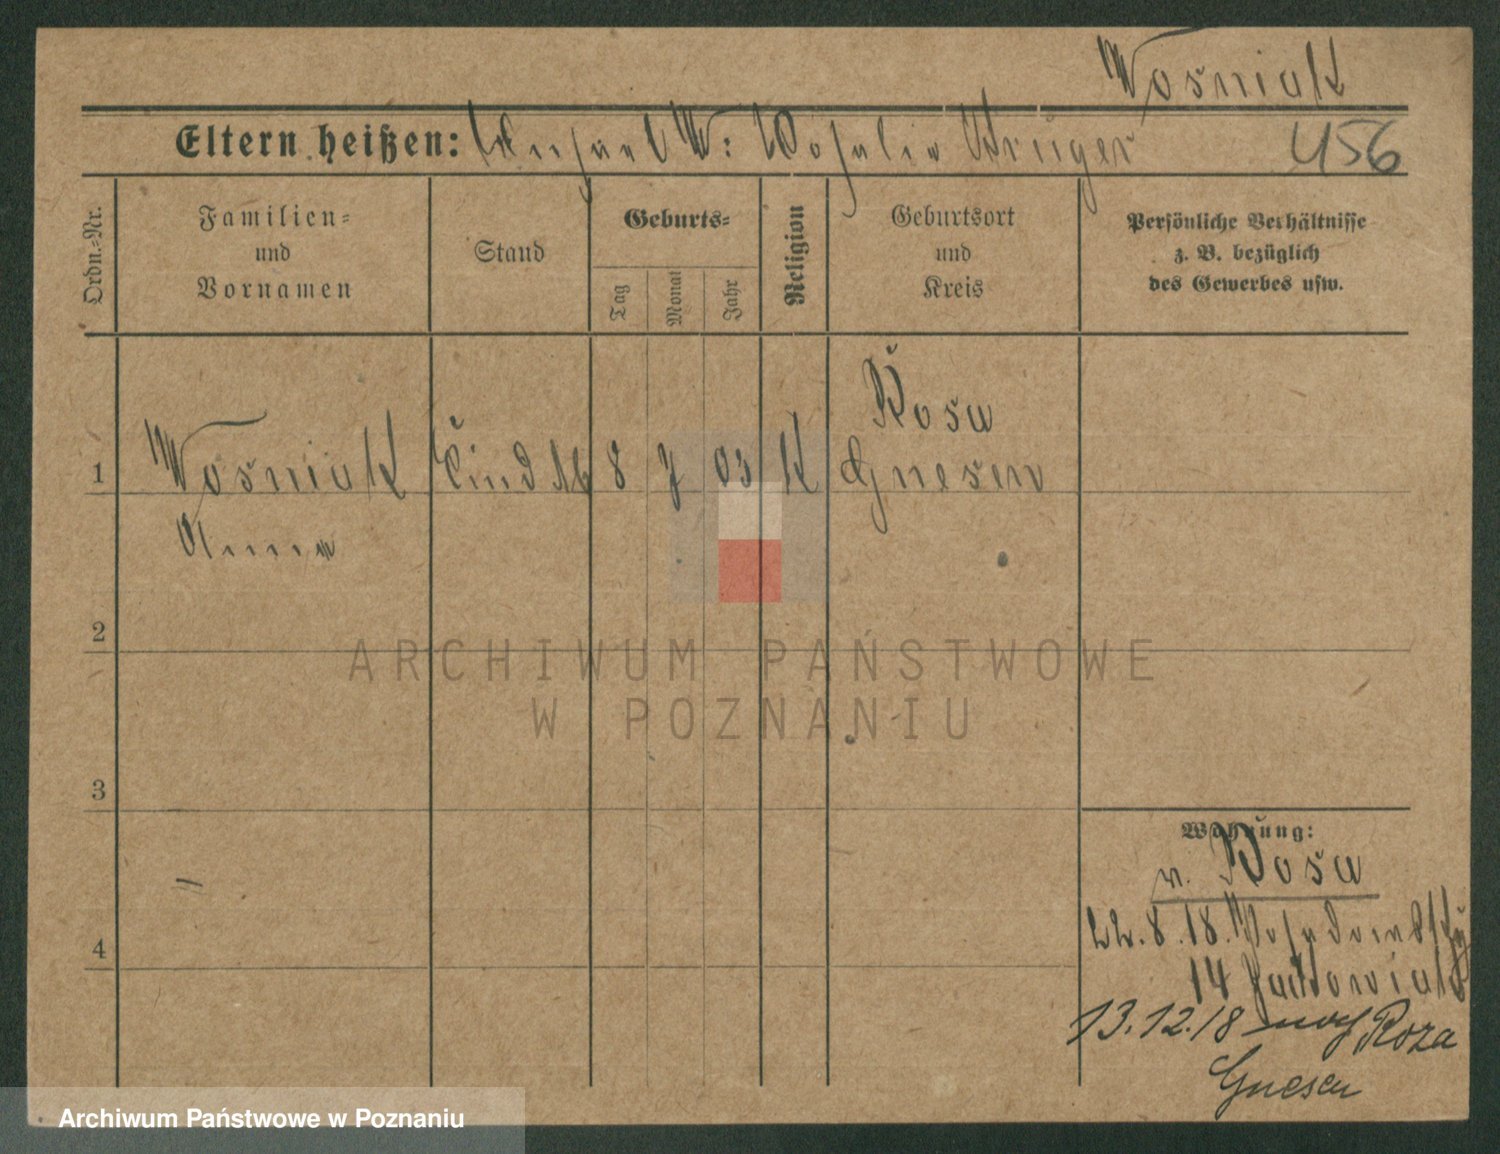 Wosniak
Eltern heißen: W: Rosalie Krüger 456
Ordn.-Nr.
Familien-
und
Vornamen
Stand
Geburts-
Tag
Monat
Jahr
Religion
Geburtsort
und
Kreis
Persönliche Verhältnisse
z. B. bezüglich
des Gewerbes usw.
Rosa
1 Wosniak 8 7 03 K Gnesen
Anna
2
ARCHIWUM PAŃSTWOWE
W POZNANIU
3
Wohnung:
v. Rosa
4 22.8.18.
14
13.12.18 noch Roza
Gnesen
Archiwum Państwowe w Poznaniu